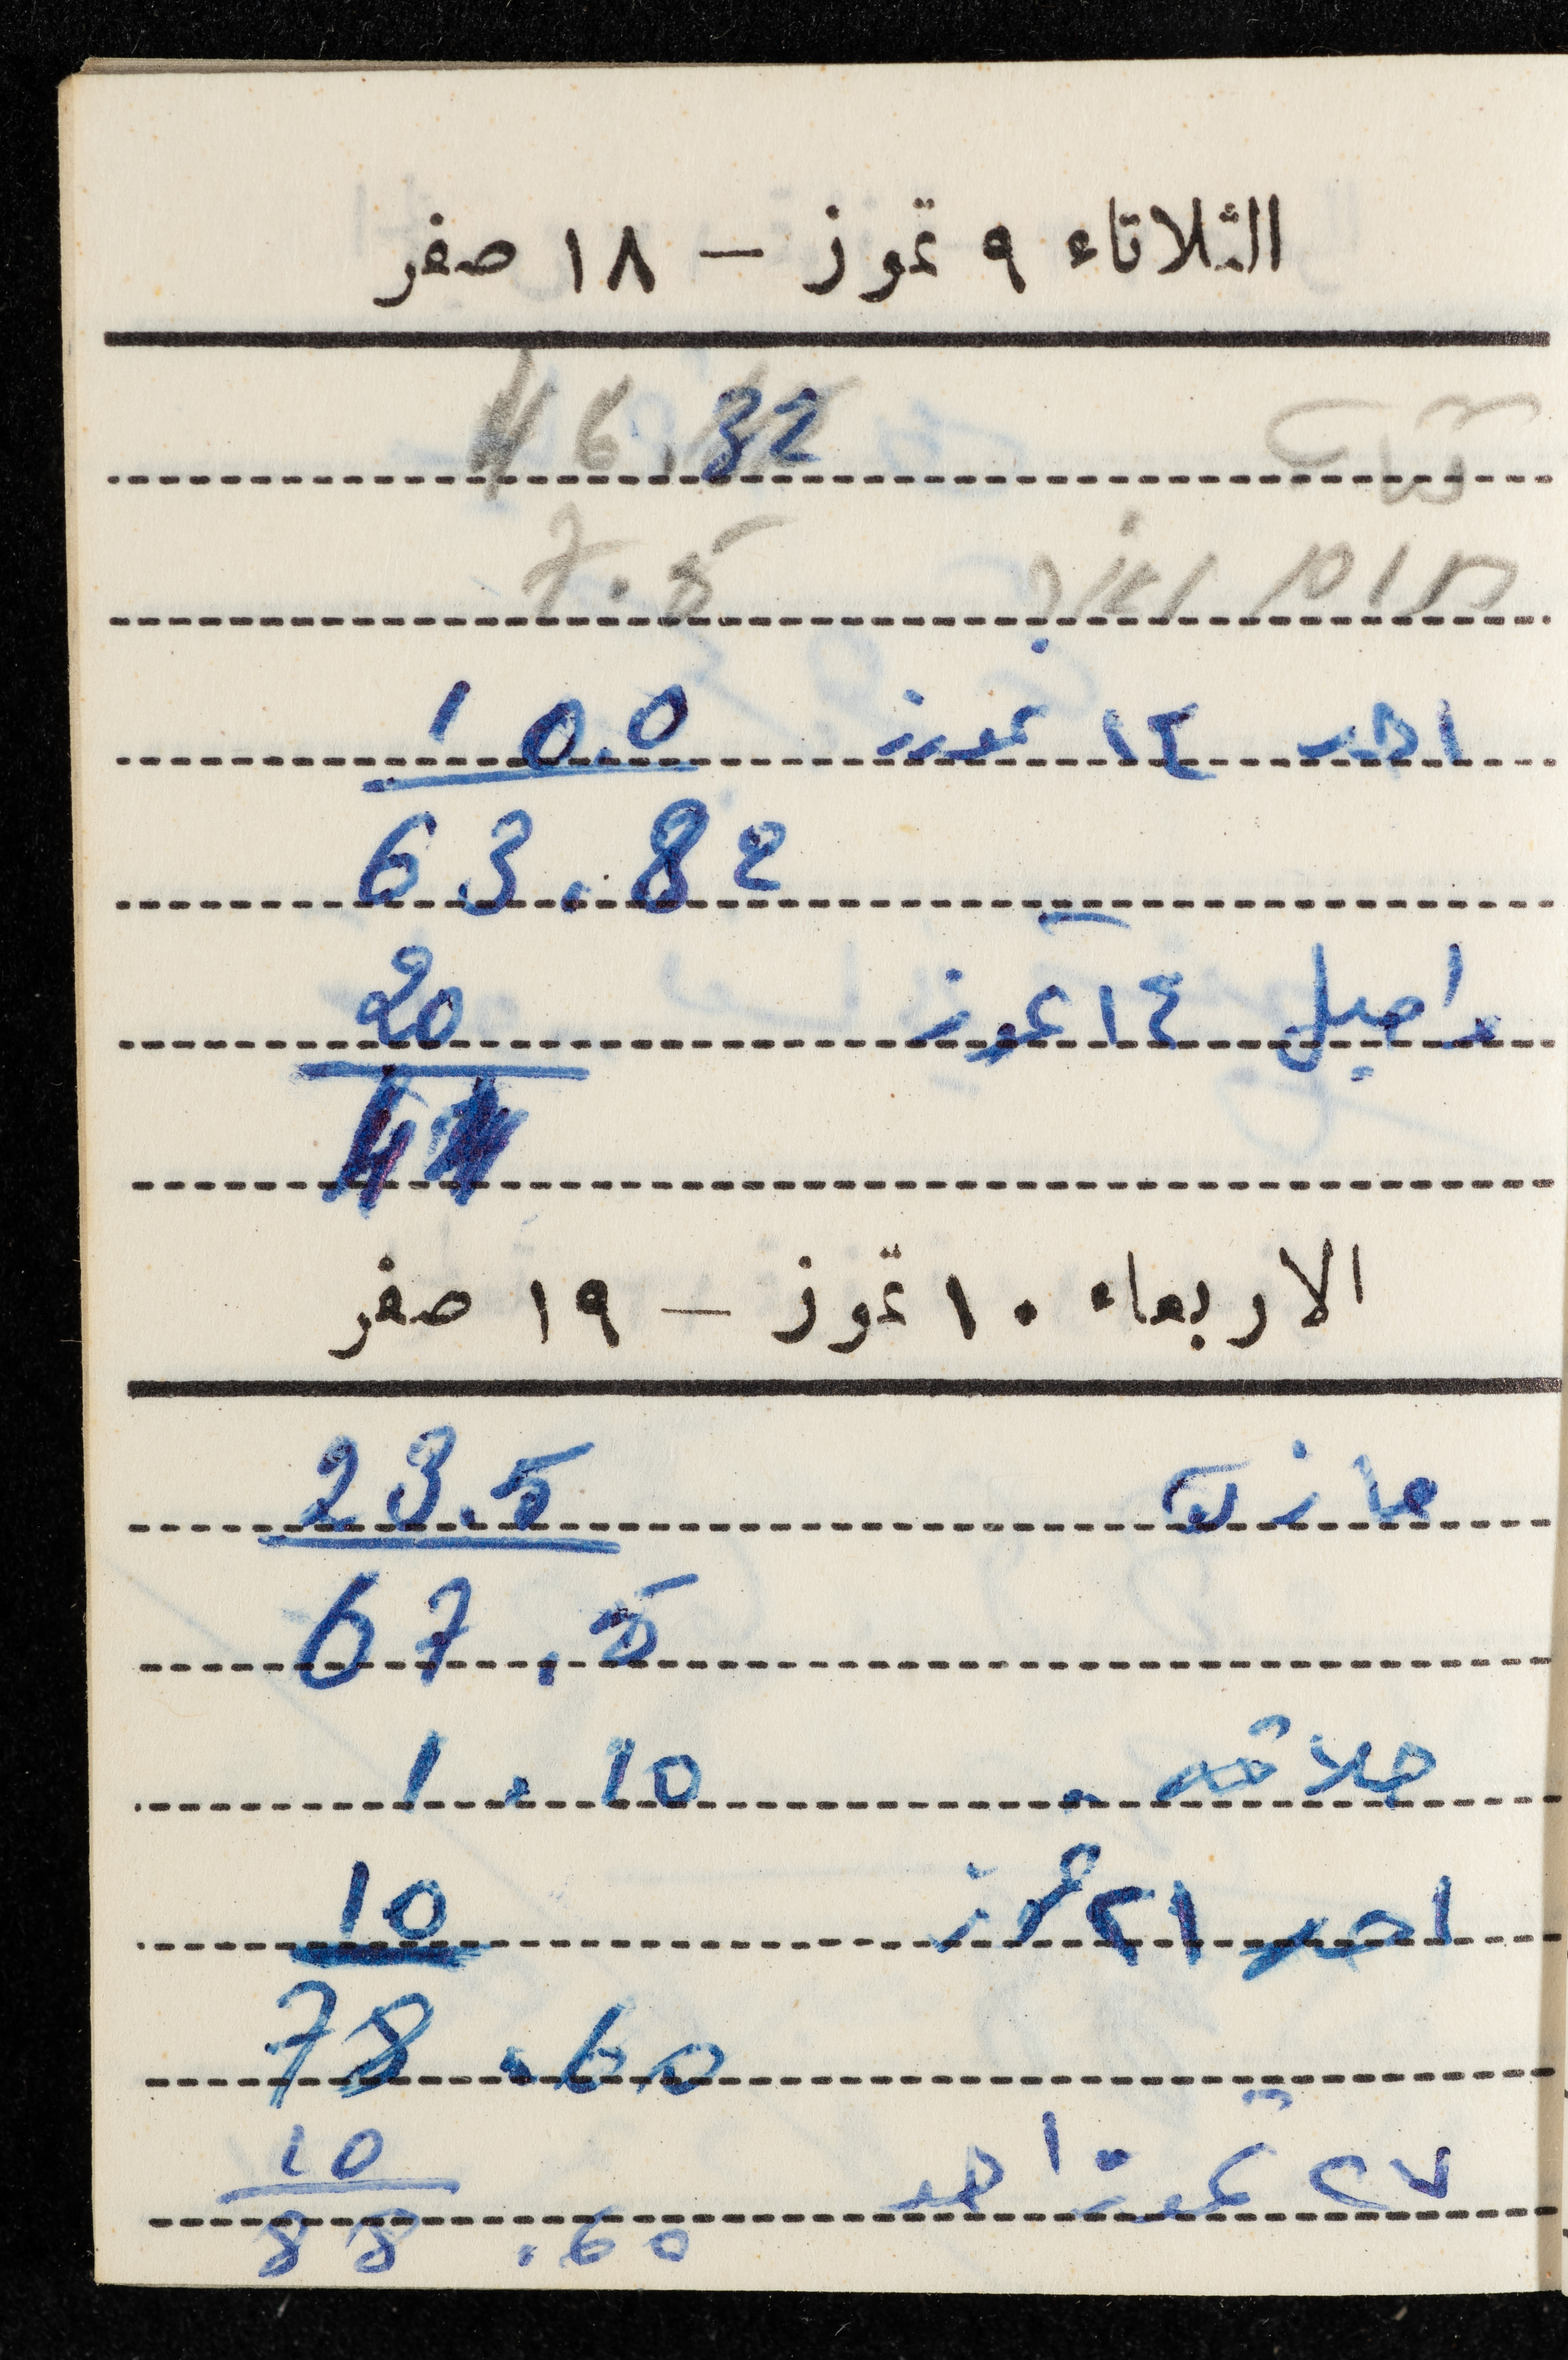 الثلاثاء ٩ تموز – ١٨ صفر
46.32
7.5
احد ١٤ تموز 10.0
63.82
مراحيل ١٤ تموز 20
الاربعاء ١٠ تموز – ١٩ صفر
23.5
67.5
حلاقه 1.10
احد ٢١ تموز 10
78.60
٢٧ تموز احد 10
88.60